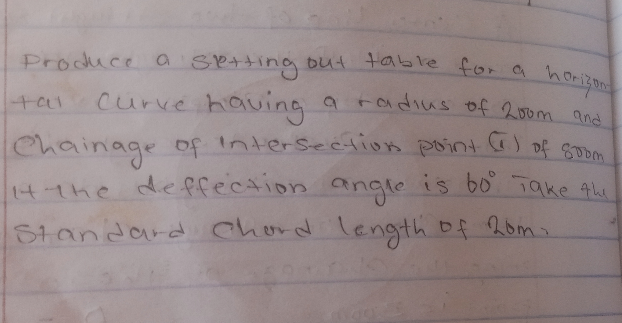 Produce a setting out table for a horizon
tal curve having a radius of 200m and
Chainage of intersection point (I) of 800m
If the deffection angle is 60° Take the
Standard Chord length of 20m.